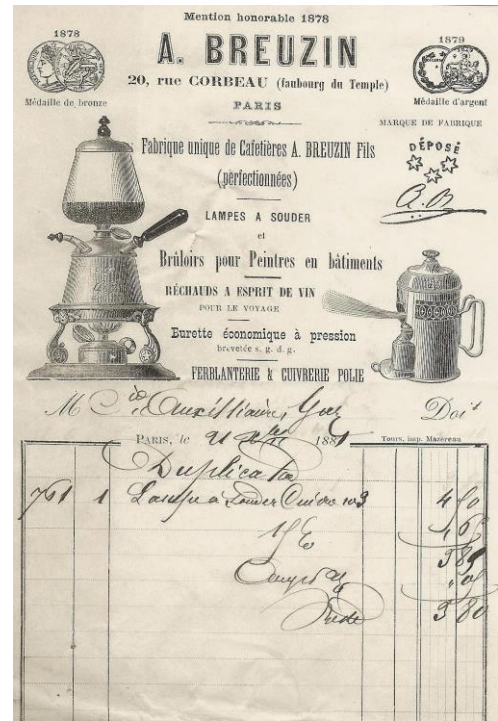 Mention honorable 1878
1878
A. BREUZIN
1879
20, rue CORBEAU (faubourg du Temple)
Médaille de bronze
PARIS
Médaille d'argent
MARQUE DE FABRIQUE
DÉPOSÉ
A. B
Fabrique unique de Cafetières A. BREUZIN Fils
(perfectionnées)
LAMPES A SOUDER
et
Brûloirs pour Peintres en bâtiments
RÉCHAUDS A ESPRIT DE VIN
POUR LE VOYAGE
Burette économique à pression
brevetée s. g. d. g.
FERBLANTERIE & CUIVRERIE POLIE
M Cie Auxilliaire, Gaz Doit
PARIS, le 21 1881
Tours, imp. Mazereau
Duplicata
761 1 Lampe à souder Cuivre 4 50
3 85
3 80